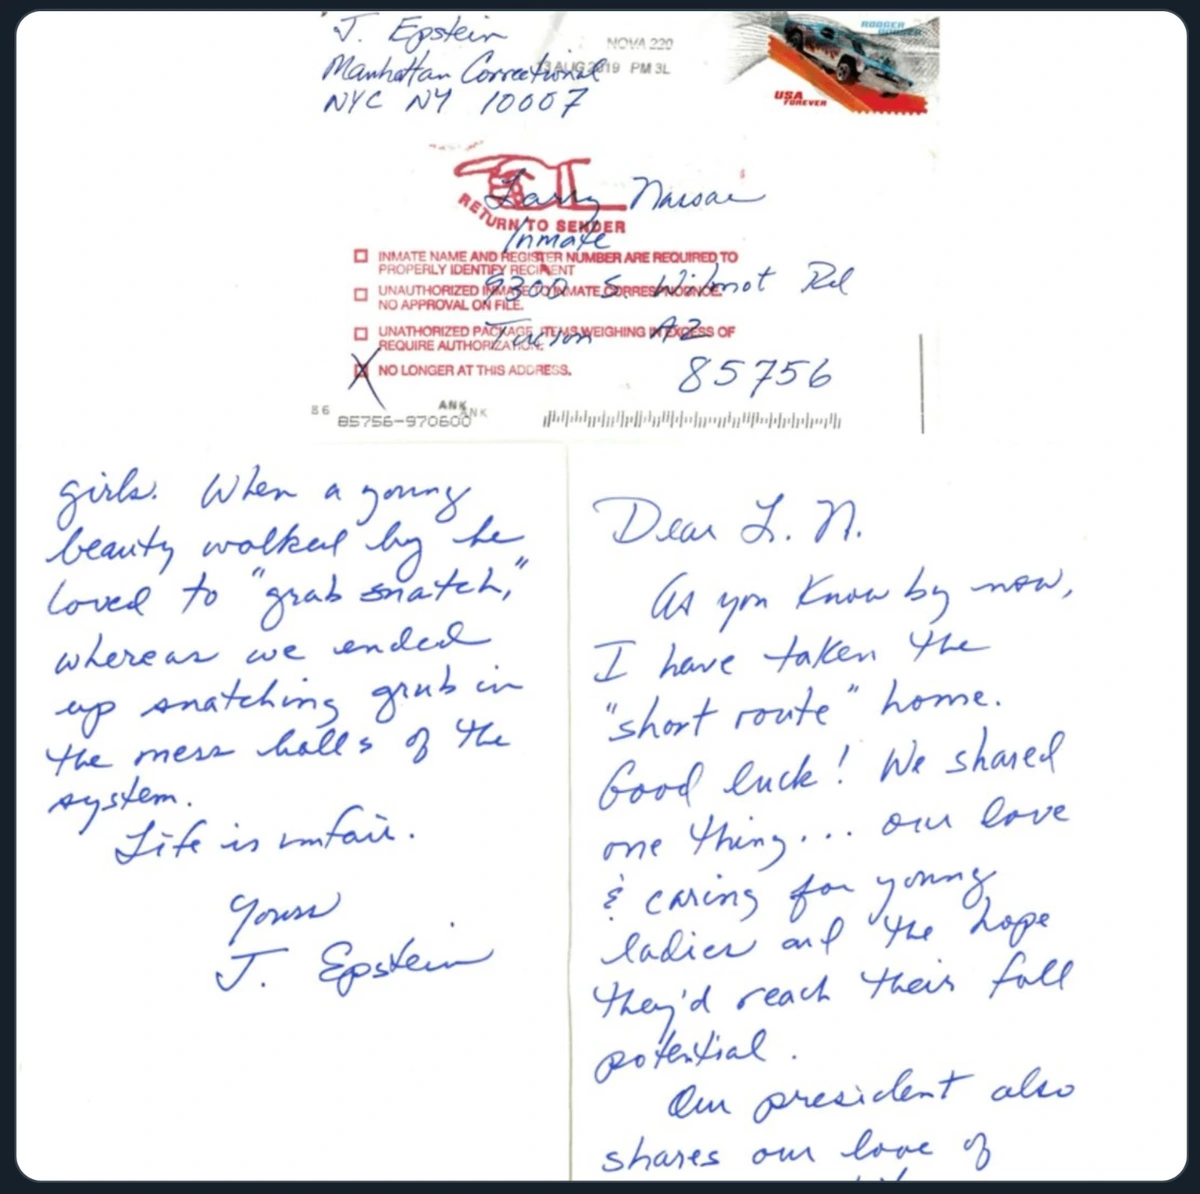 J. Epstein
Manhattan Correctional
NYC NY 10007
NOVA 220
AUG 2019 PM 3L
RODGER DODGER
USA
FOREVER
RETURN TO SENDER
Larry Nassar
Inmate
9300 S. Wilmot Rd
Tucson AZ
85756
INMATE NAME AND REGISTER NUMBER ARE REQUIRED TO
PROPERLY IDENTIFY RECIPIENT
UNAUTHORIZED INMATE TO INMATE CORRESPONDENCE.
NO APPROVAL ON FILE.
UNATHORIZED PACKAGE, ITEMS WEIGHING IN EXCESS OF
REQUIRE AUTHORIZATION.
X NO LONGER AT THIS ADDRESS.
86
ANK
ANK
85756-970600
Dear L. N.
As you know by now,
I have taken the
"short route" home.
Good luck! We shared
one thing... our love
& caring for young
ladies and the hope
they'd reach their full
potential.
Our president also
shares our love of
girls. When a young
beauty walked by he
loved to "grab snatch,"
whereas we ended
up snatching grub in
the mess halls of the
system.
Life is unfair.
Yours
J. Epstein